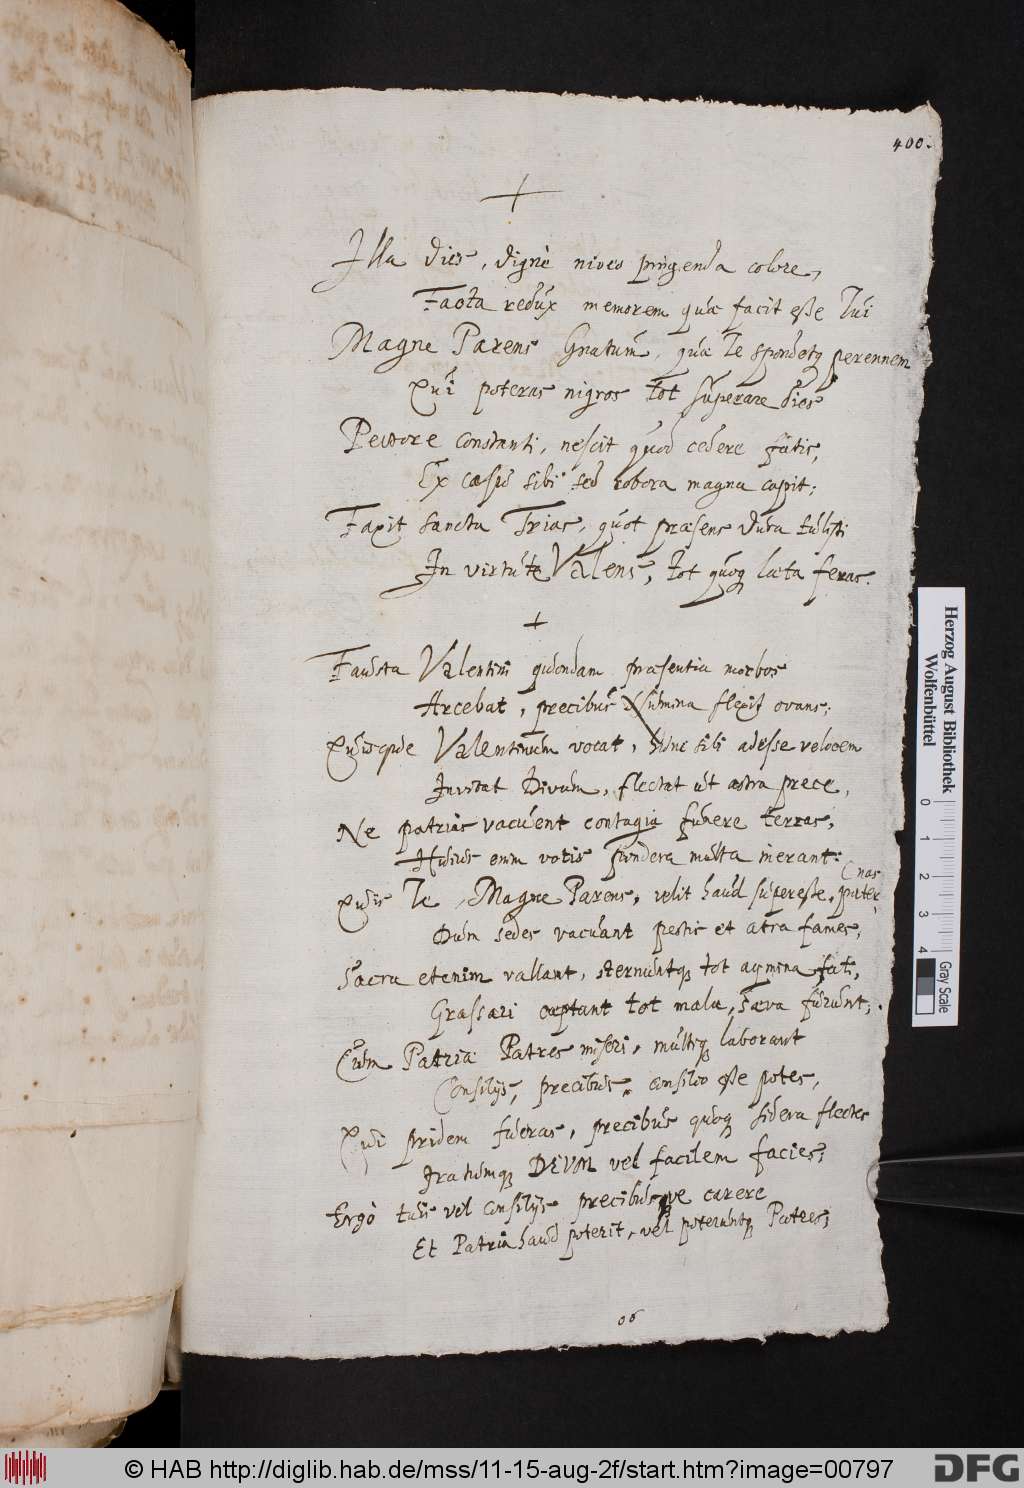 400.
Illa dies, dignè niveo pingenda colore,
Facta redux memorem quæ facit esse Tui
Magne Parens Gnatum, quæ Te spondetq perennem
Qui poteras nigros tot superare dies
Pectore constanti, nescit quod cedere fatis,
Ex cæsu sibi sed robora magna capit;
Faxit sancta Trias, quot præsens dura tulisti
In virtute Valens, tot quoq læta feras.
Fausta Valentini quondam præsentia morbos
Arcebat, precibus numina flexit ovans;
Quisque Valentinum vocat, hunc sibi adesse velocem
Invitat Divum, flectat ut astra prece,
Ne patrias vacuent contagia funere terras,
Huius enim votis pondera multa inerant:
Quis Te, Magne Parens, velit haud superesse, pater-
nas
Dum sedes vacuant pestis et atra fames,
Sacra etenim vallant, sternuntq tot agmina fati,
Grassari captant tot mala, sæva furunt;
Cum Patriæ Patres miseri, multiq laborant
Consilijs, precibus, consilio esse potes,
Qui pridem fueras, precibus quoq sidera flectes
Iratumq DEUM vel facilem facies;
Ergò tuis vel consilijs precibusve carere
Et Patria haud poterit, vel poteruntq Patres;
06
Herzog August Bibliothek
Wolfenbüttel
0 1 2 3 4
Gray Scale
© HAB http://diglib.hab.de/mss/11-15-aug-2f/start.htm?image=00797
DFG